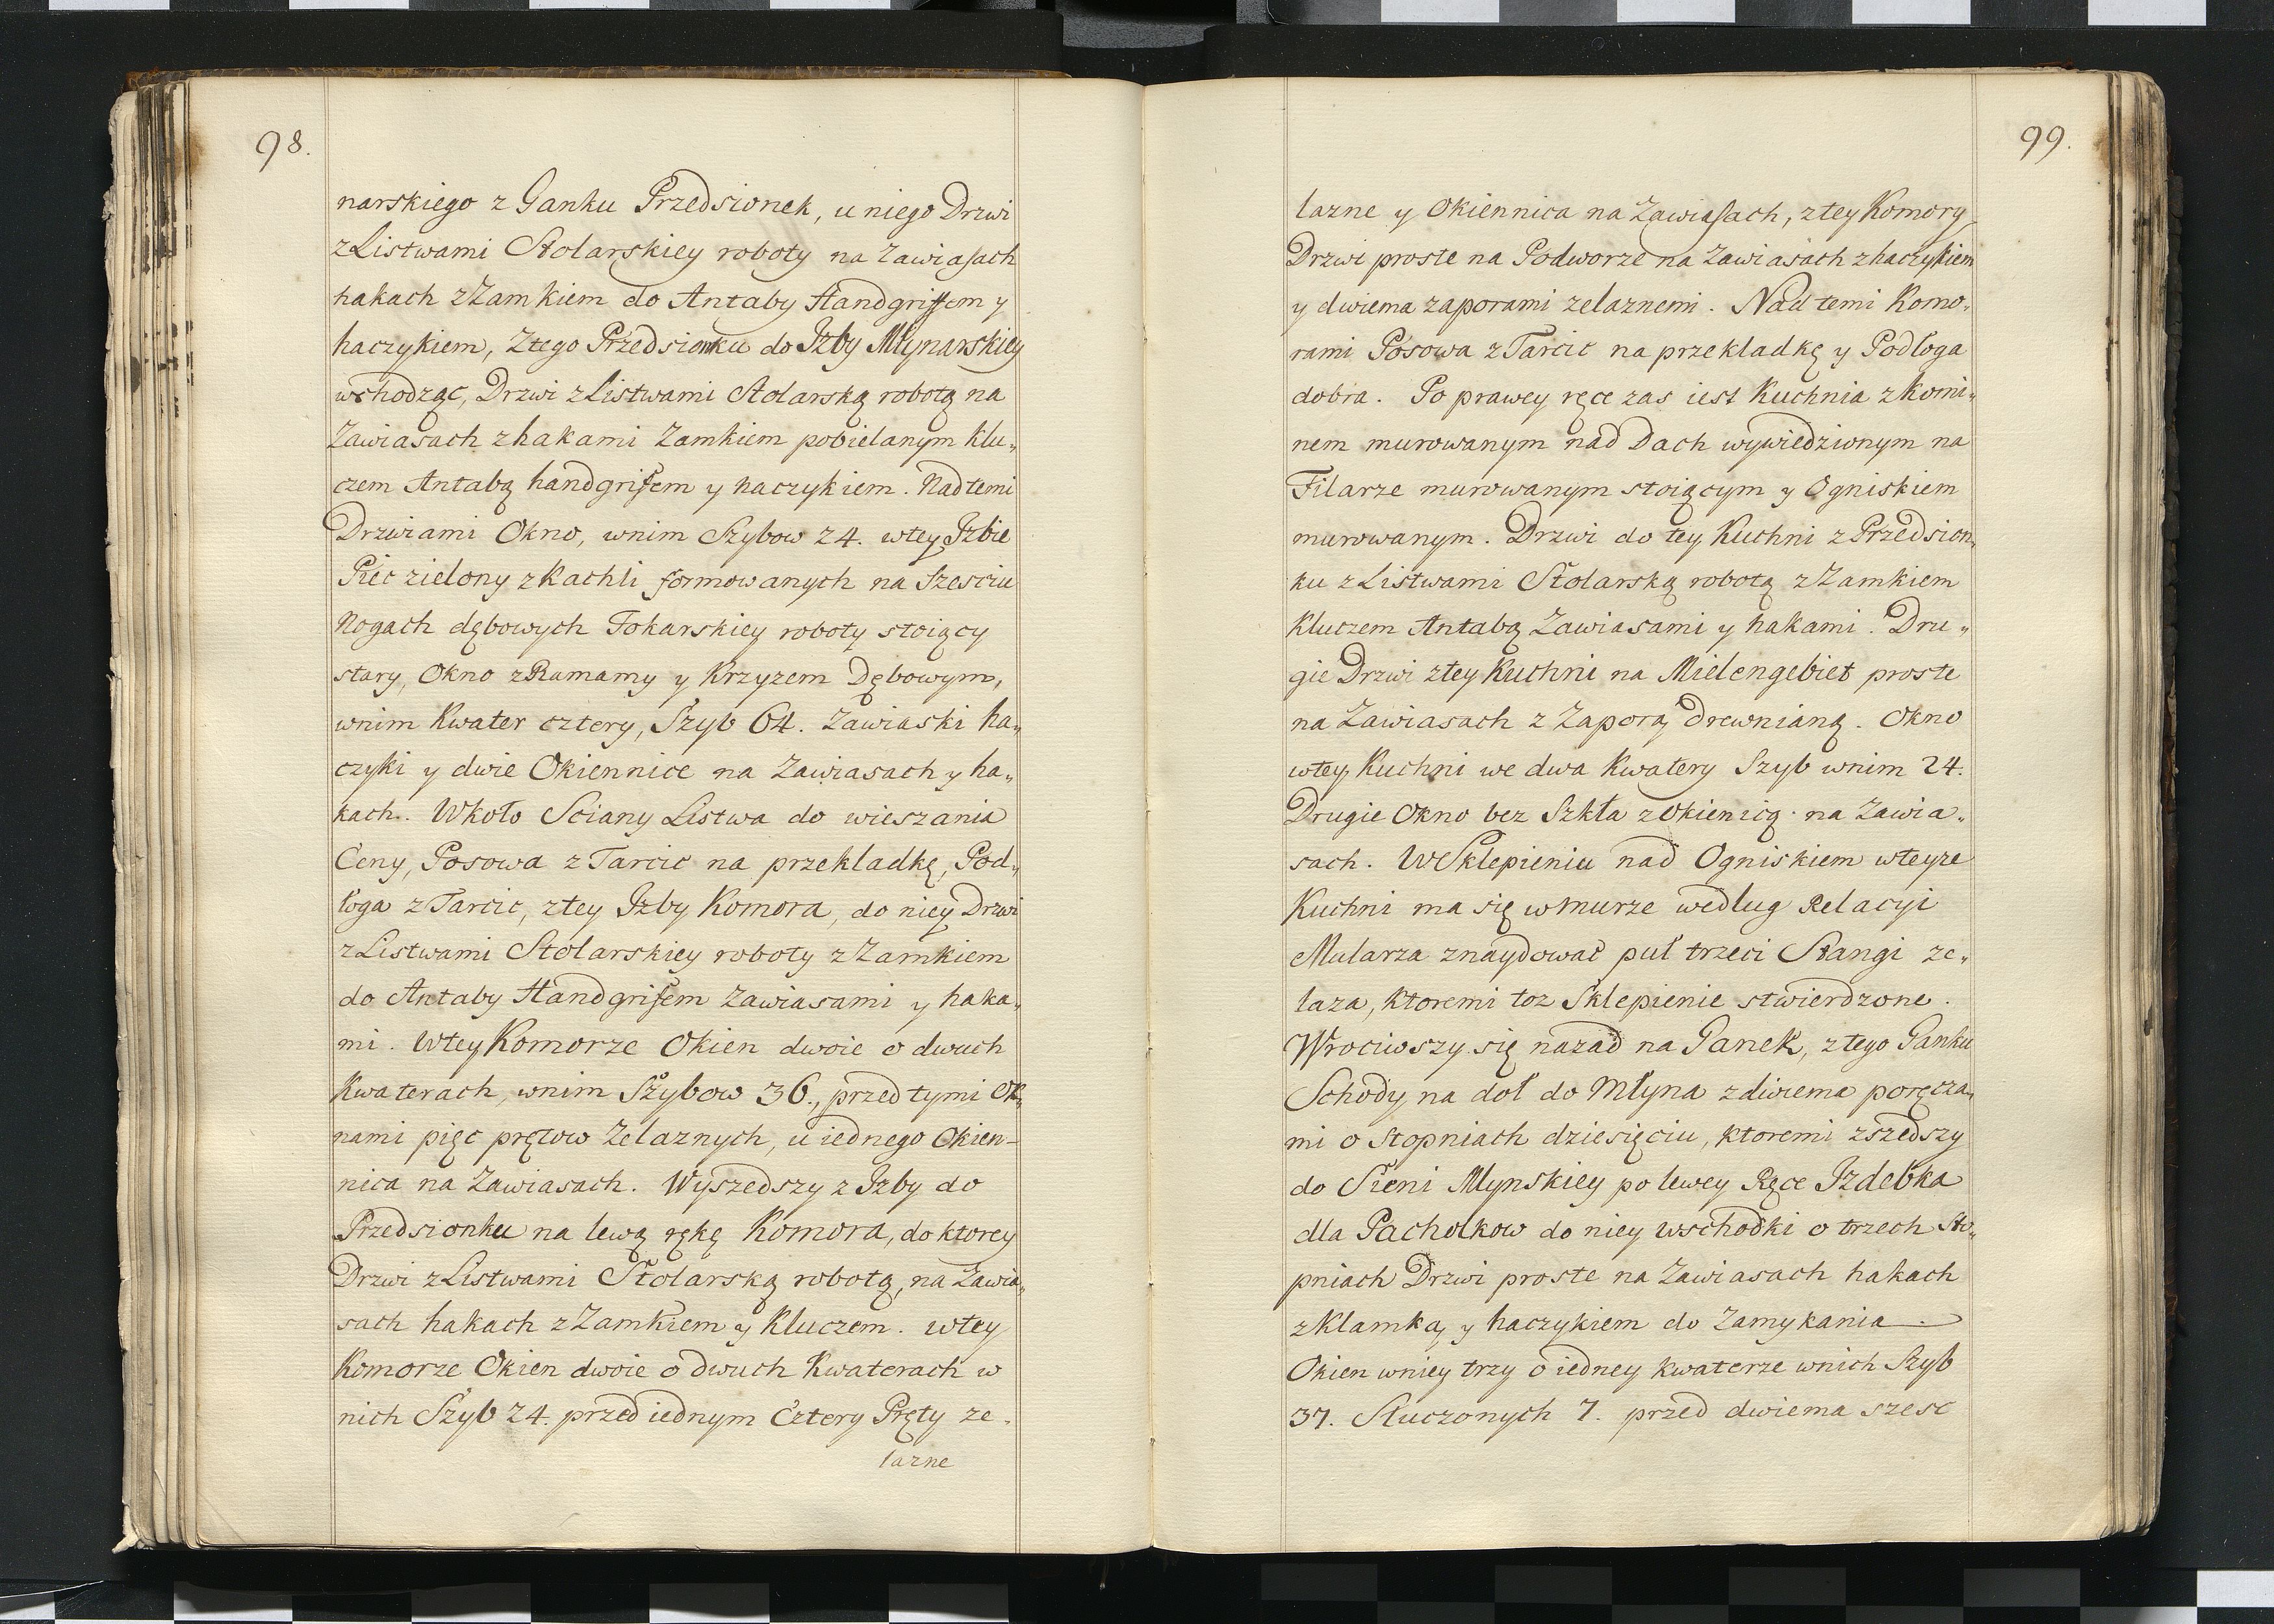 98.
narskiego z Ganku Przedsionek, u niego Drzwi
z Listwami Stolarskiey roboty na Zawiasach
hakach z Zamkiem do Antaby Handgriffem y
haczykiem, Z tego Przedsionku do Izby Młynarskiey
wchodząc, Drzwi z Listwami Stolarską robotą na
Zawiasach z hakami Zamkiem pobielanym Klu„
czem Antabą handgrifem y haczykiem. Nad temi
Drzwiami Okno, w nim Szybow 24. w tey Izbie
Piec zielony z Kachli formowanych na Szesciu
Nogach dębowych Tokarskiey roboty stoiący
stary, Okno z Ramamy y Krzyzem Dębowym,
w nim Kwater cztery, Szyb 64. Zawiaski ha„
czyki y dwie Okiennice na Zawiasach y ha„
kach. Wkoło Sciany Listwa do wieszania
Ceny, Posowa z Tarcic na przekladkę, Pod„
łoga z Tarcic, z tey Izby Komora, do niey Drzwi
z Listwami Stolarskiey roboty z Zamkiem
do Antaby Handgrifem Zawiasami y haka„
mi. W tey Komorze Okien dwoie o dwuch
Kwaterach, w nim Szybow 36., przed tymi Ok„
nami pięc prętow Zelaznych, u iednego Okien-
nica na Zawiasach. Wyszedszy z Izby do
Przedsionku na lewą rękę Komora, do ktorey
Drzwi z Listwami Stolarską robotą, na Zawia„
sach hakach z Zamkiem y Kluczem. w tey
Komorze Okien dwoie o dwuch Kwaterach w
nich Szyb 24. przed iednym Cztery Pręty ze„
lazne
99.
lazne y Okiennica na Zawiasach, z tey Komory
Drzwi proste na Podworze na Zawiasach z haczykiem
y dwiema zaporami zelaznemi. Nad temi Komo„
rami Posowa z Tarcic na przekladkę y Podłoga
dobra. Po prawey ręce zas iest Kuchnia z Komi„
nem murowanym nad Dach wywiedzionym na
Filarze murowanym stoiącym y Ogniskiem
murowanym. Drzwi do tey Kuchni z Przedsion„
ku z Listwami Stolarską robotą z Zamkiem
Kluczem Antabą Zawiasami y hakami. Dru„
gie Drzwi z tey Kuchni na Mielengebiet proste
na Zawiasach z Zaporą drewnianą. Okno
w tey Kuchni we dwa Kwatery Szyb w nim 24.
Drugie Okno bez Szkła z Okienicą na Zawia„
sach. W Sklepieniu nad Ogniskiem w teyze
Kuchni ma się w murze według Relacyi
Mularza znaydować puł trzeci Stangi ze„
laza, Ktoremi toz Sklepienie stwierdzone.
Wrociwszy się nazad na Ganek, z tego Ganku
Schody na doł do Młyna z dwiema poręcza„
mi o Stopniach dziesięciu, Ktoremi zszedszy
do Sieni Młynskiey po lewey Ręce Izdebka
dla Pacholkow do niey wschodki o trzech Sto„
pniach Drzwi proste na Zawiasach hakach
z Klamką y haczykiem do Zamykania.
Okien w niey trzy o iedney Kwaterze w nich Szyb
37. Stuczonych 7. przed dwiema szesc